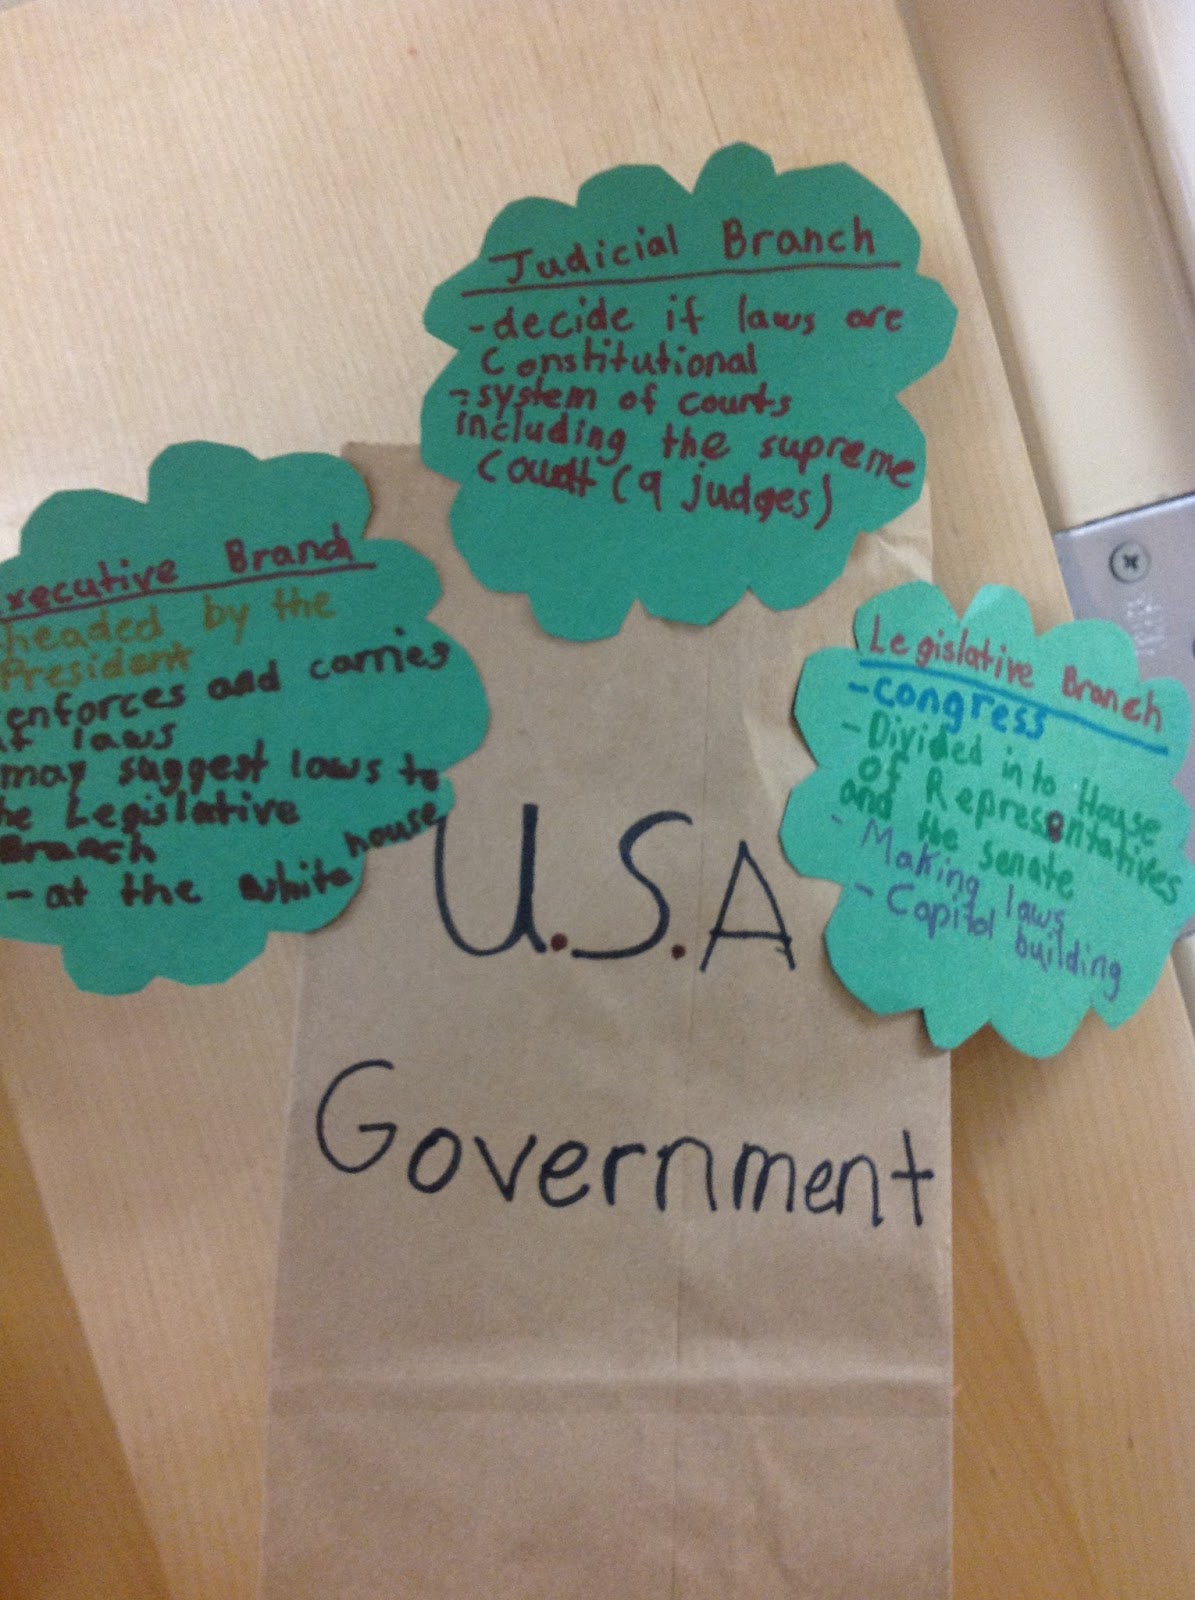 Judicial Branch
- decide if laws are
Constitutional
- system of courts
including the supreme
court (9 judges)
Executive Branch
headed by the
President
enforces and carries
of laws
may suggest laws to
the Legislative
Branch
- at the white house
Legislative Branch
- congress
- Divided into House
of Representatives
and the senate
- Making laws
- Capitol building
U.S.A
Government